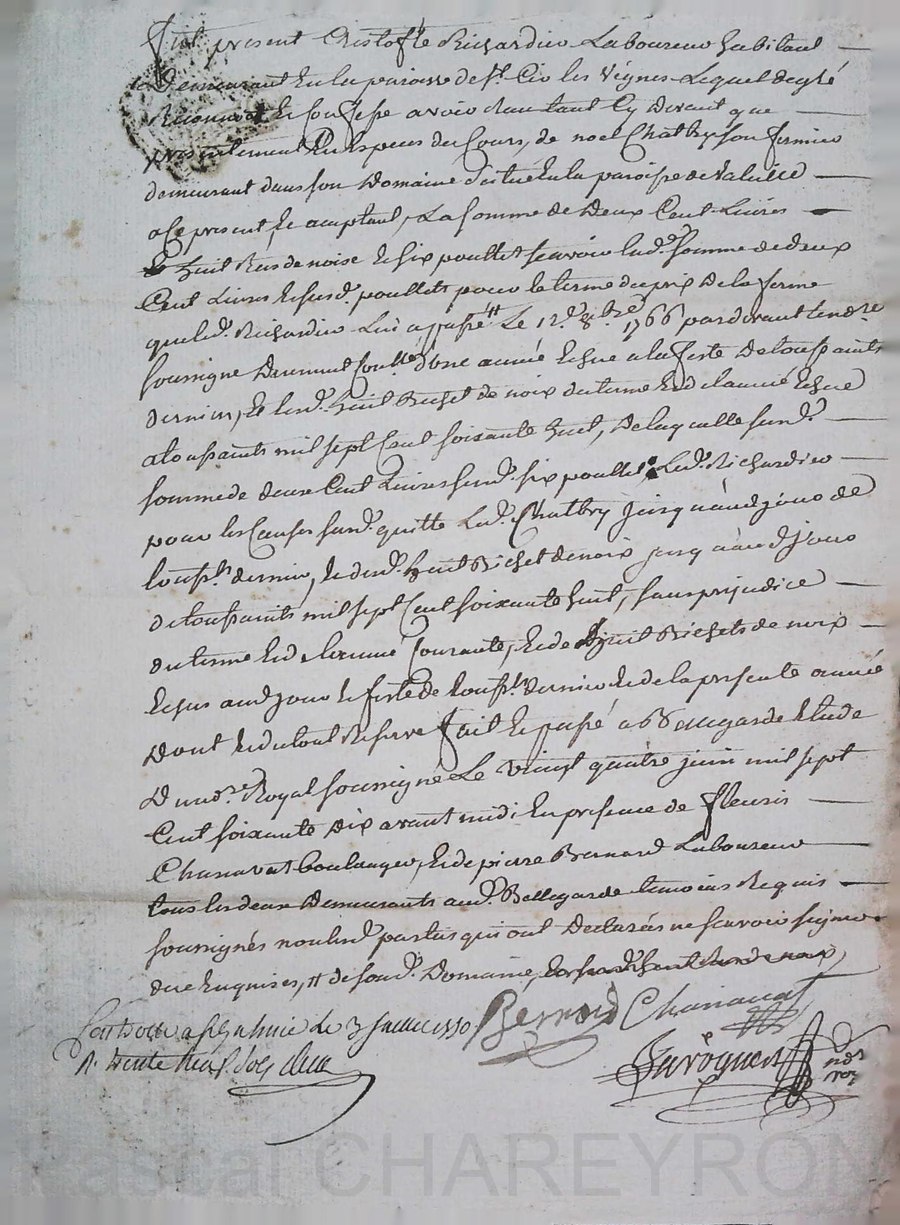 Fut présent Cristofle Richardier Laboureur habitant
Demeurant En la paroisse de St. Cir les Vignes Lequel de gré
Reconnoit Et Confesse avoir dans tant Cy Devant que
présentement En Espèces du Cours, de noel Chatbry son fermier
demeurant dans son Domaine scitué En la paroisse de Valeille
a Ce présent, Et aceptant, La somme de Deux Cent Livres
Huit Ras de noise Et six poullets sçavoir lad. somme de deux
Cent Livres Et susd. poullets pour le terme du prix De la ferme
que led. Richardier Luy a passé # Le 12e. 8bre. 1766 pardevant le no.re
soussigné Deument Conllé d'une année Echue a la feste De toussaints
dernier, Et lesd. huit Bichet de noix du terme Et de l'année Echue
a toussaints mil sept Cent soixante huit, De laquelle susd.
somme de deux Cent Livres susd. six poullets Led. Richardier
pour les Causes susd. quitte Led. Chatbry jusqu'aud. jour de
touss.ts dernier, Et desd. huit Bichet de noix jusqu'aud. jour
de toussaints mil sept Cent soixante huit, sans préjudice
du terme Et de l'année Courante, Et de huit Bichets de noix
Echus aud. jour Et feste de touss.ts Dernier Et de la présente année
Dont Et du tout Réserve fait Et passé a Bellegarde Etude
Du no.re Royal soussigné Le Vingt quatre juin mil sept
Cent soixante Dix avant midi En présence de fleuris
Chanavat boulanger, Et de pierre Bernard Laboureur
tous les deux Demeurants aud. Bellegarde temoins Requis
soussignés non lesd. parties qui ont Déclarés ne sçavoir signer
de ce Enquises, # de sond. Domaine,
Bernard Chanavat
le 3 juillet 1770
R. trente neuf sols